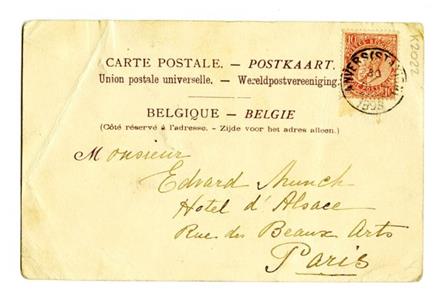 K2022
CARTE POSTALE. — POSTKAART.
Union postale universelle. — Wereldpostvereeniging.
BELGIQUE — BELGIE
(Côté réservé à l'adresse. - Zijde voor het adres alleen.)
Monsieur
Edvard Munch
Hotel d'Alsace
Rue des Beaux Arts
Paris